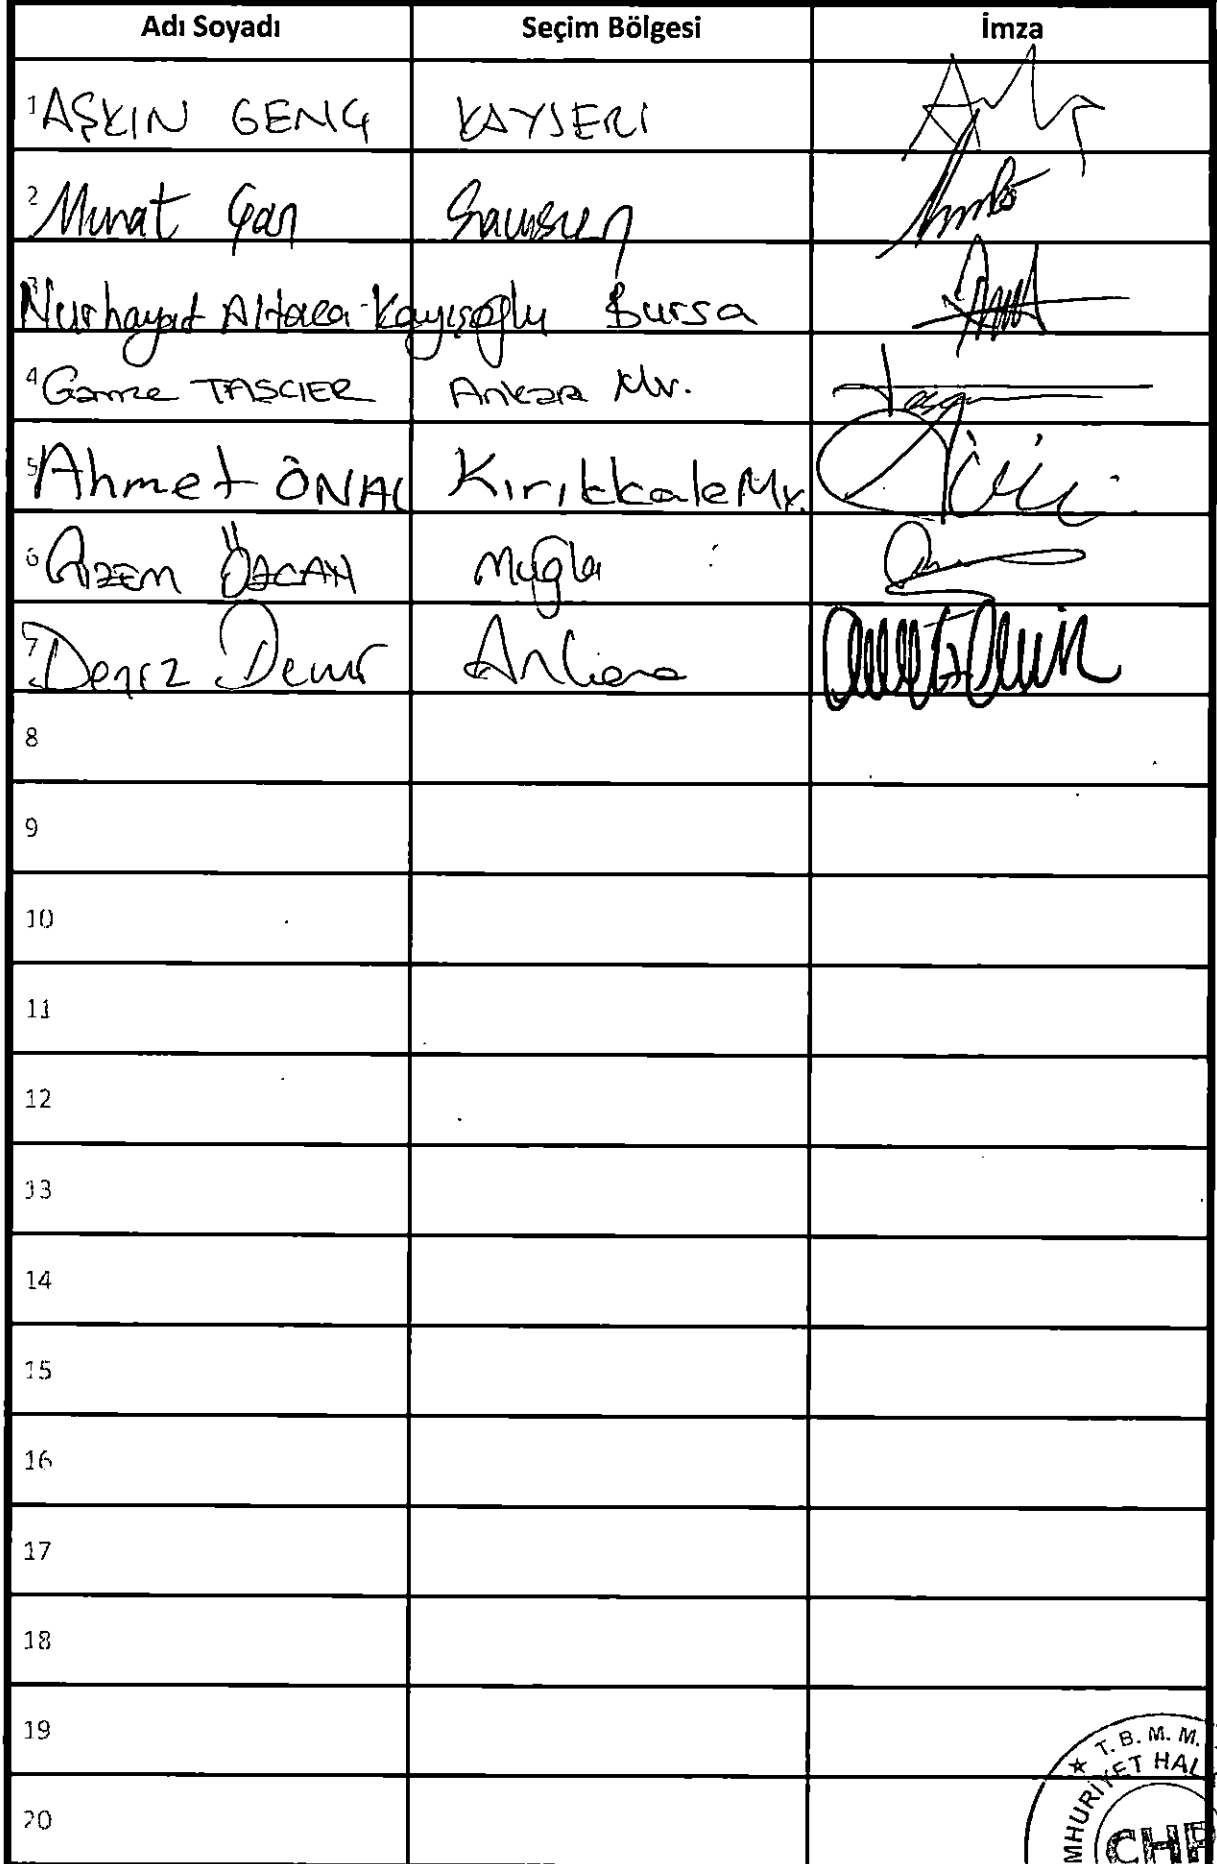 Adı Soyadı Seçim Bölgesi İmza
1 AŞKIN GENÇ KAYSERİ
2 Murat Çan Samsun
3 Nurhayat Altaca Kayışoğlu Bursa
4 Gamze TAŞCIER Ankara Mv.
5 Ahmet ÖNAL Kırıkkale Mv.
6 Gizem ÖZCAN Muğla
7 Deniz Demir Ankara
8
9
10
11
12
13
14
15
16
17
18
19
20
★ T. B. M. M.
MHURİYET HAL
CHP